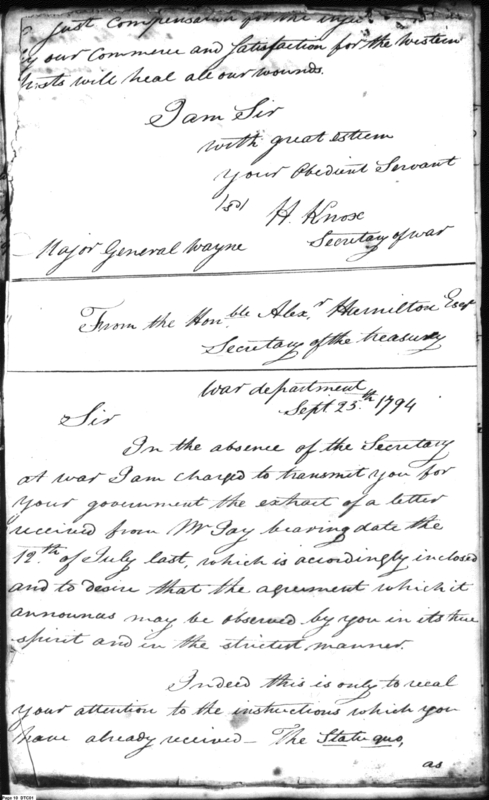 Just Compensation for the
our Commerce and Satisfaction for the Western
Posts will heal all our wounds.
I am Sir
with great esteem
your Obedient Servant
H. Knox
Secretary of war
Major General Wayne
From the Hon.ble Alex.r Hamilton Esqr
Secretary of the treasury
War department
Sept 25.th 1794
Sir
In the absence of the Secretary
at war I am charged to transmit you for
your government the extract of a letter
received from Mr Jay bearing date the
12.th of July last, which is accordingly inclosed
and to desire that the agreement which it
announces may be observed by you in its true
spirit and in the strictest manner.
Indeed this is only to recal
your attention to the instructions which you
have already received — The State quo,
as
Page 19 DTC01